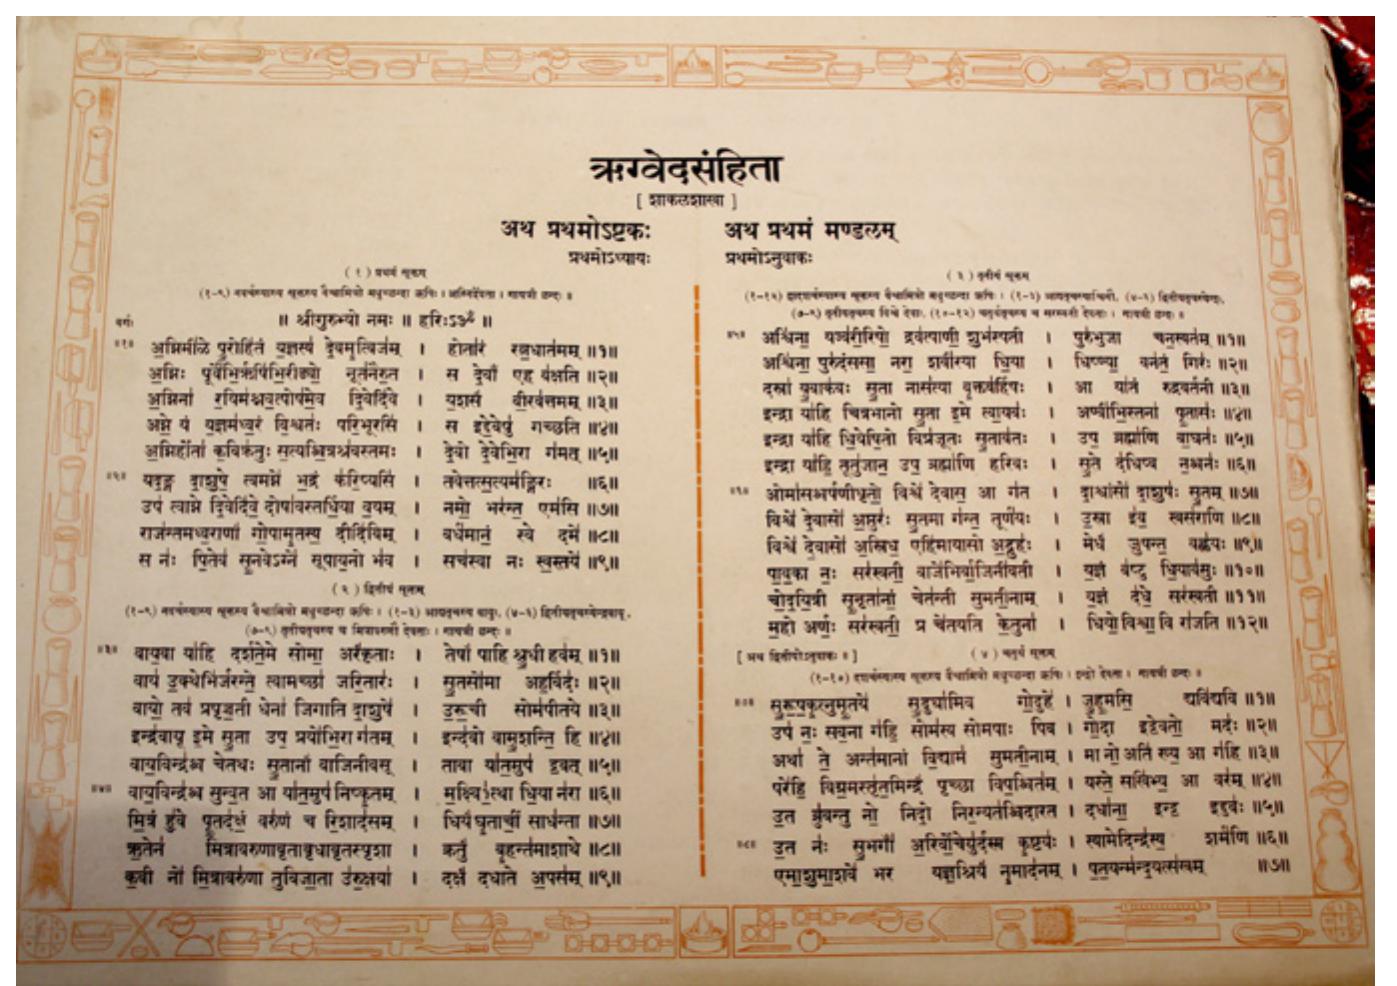 ऋग्वेदसंहिता
[ शाकलशाखा ]
अथ प्रथमोऽष्टकः
प्रथमोऽध्यायः
( १ ) प्रथमं सूक्तम्
(१-९) नवर्चस्यास्य सूक्तस्य वैश्वामित्रो मधुच्छन्दा ऋषिः । अग्निर्देवता । गायत्री छन्दः ॥
वर्गः ॥ श्रीगुरुभ्यो नमः ॥ हरिःऽ३ॐ ॥
॥१॥ अ॒ग्निमी॑ळे पु॒रोहि॑तं य॒ज्ञस्य॑ दे॒वमृ॒त्विज॑म् । होता॑रं रत्न॒धात॑मम् ॥१॥
अ॒ग्निः पूर्वे॑भि॒र्ऋषि॑भि॒रीड्यो॒ नूत॑नैरु॒त । स दे॒वाँ एह व॑क्षति ॥२॥
अ॒ग्निना॑ र॒यिम॑श्नव॒त्पोष॑मे॒व दि॒वेदि॑वे । य॒शसं॑ वी॒रव॑त्तमम् ॥३॥
अग्ने॒ यं य॒ज्ञम॑ध्व॒रं वि॒श्वतः॑ परि॒भूरसि॑ । स इद्दे॒वेषु॑ गच्छति ॥४॥
अ॒ग्निर्होता॑ क॒विक्र॑तुः स॒त्यश्चि॒त्रश्र॑वस्तमः । दे॒वो दे॒वेभि॒रा ग॑मत् ॥५॥
॥२॥ यद॒ङ्ग दा॒शुषे॒ त्वमग्ने॑ भ॒द्रं क॑रि॒ष्यसि॑ । तवेत्तत्स॒त्यम॑ङ्गिरः ॥६॥
उप॑ त्वाग्ने दि॒वेदि॑वे॒ दोषा॑वस्तर्धि॒या व॒यम् । नमो॒ भर॑न्त॒ एम॑सि ॥७॥
राज॑न्तमध्व॒राणां॑ गो॒पामृ॒तस्य॒ दीदि॑विम् । वर्ध॑मानं॒ स्वे दमे॑ ॥८॥
स नः॑ पि॒तेव॑ सू॒नवेऽग्ने॑ सूपाय॒नो भ॑व । सच॑स्वा नः स्व॒स्तये॑ ॥९॥
( २ ) द्वितीयं सूक्तम्
(१-९) नवर्चस्यास्य सूक्तस्य वैश्वामित्रो मधुच्छन्दा ऋषिः । (१-३) आद्यतृचस्य वायुः, (४-६) द्वितीयतृचस्येन्द्रवायू,
(७-९) तृतीयतृचस्य च मित्रावरुणौ देवताः । गायत्री छन्दः ॥
॥३॥ वाय॒वा या॑हि दर्शते॒मे सोमा॒ अरं॑कृताः । तेषां॑ पाहि श्रु॒धी हव॑म् ॥१॥
वाय॑ उ॒क्थेभि॑र्जरन्ते॒ त्वामच्छा॑ जरि॒तारः॑ । सु॒तसो॑मा अह॒र्विदः॑ ॥२॥
वायो॒ तव॑ प्रपृञ्च॒ती धेना॑ जिगाति दा॒शुषे॑ । उ॒रू॒ची सोम॑पीतये ॥३॥
इन्द्र॑वायू इ॒मे सु॒ता उप॒ प्रयो॑भि॒रा ग॑तम् । इन्द॑वो वामु॒शन्ति॒ हि ॥४॥
वाय॒विन्द्र॑श्च चेतथः सु॒तानां॑ वाजिनीवसू । तावा या॑त॒मुप॑ द्र॒वत् ॥५॥
॥४॥ वाय॒विन्द्र॑श्च सुन्व॒त आ या॑त॒मुप॑ निष्कृ॒तम् । म॒क्ष्वि॒१॒॑त्था धि॒या न॑रा ॥६॥
मि॒त्रं हु॑वे पू॒तद॑क्षं॒ वरु॑णं च रि॒शाद॑सम् । धियं॑ घृ॒ताचीं॒ साध॑न्ता ॥७॥
ऋ॒तेन॑ मित्रावरुणावृतावृधावृतस्पृशा । क्रतुं॑ बृ॒हन्त॑माशाथे ॥८॥
क॒वी नो॑ मि॒त्रावरु॑णा तुविजा॒ता उ॑रु॒क्षया॑ । दक्षं॑ दधाते अ॒पस॑म् ॥९॥
अथ प्रथमं मण्डलम्
प्रथमोऽनुवाकः
( ३ ) तृतीयं सूक्तम्
(१-१२) द्वादशर्चस्यास्य सूक्तस्य वैश्वामित्रो मधुच्छन्दा ऋषिः । (१-३) आद्यतृचस्याश्विनौ, (४-६) द्वितीयतृचस्येन्द्रः,
(७-९) तृतीयतृचस्य विश्वे देवाः, (१०-१२) चतुर्थतृचस्य च सरस्वती देवताः । गायत्री छन्दः ॥
॥५॥ अश्वि॑ना॒ यज्व॑री॒रिषो॒ द्रव॑त्पाणी॒ शुभ॑स्पती । पुरु॑भुजा चन॒स्यत॑म् ॥१॥
अश्वि॑ना॒ पुरु॑दंससा॒ नरा॒ शवी॑रया धि॒या । धिष्ण्या॒ वन॑तं॒ गिरः॑ ॥२॥
दस्रा॑ यु॒वाक॑वः सु॒ता नास॑त्या वृ॒क्तब॑र्हिषः । आ या॑तं रुद्रवर्तनी ॥३॥
इन्द्रा या॑हि चित्रभानो सु॒ता इ॒मे त्वा॒यवः॑ । अण्वी॑भि॒स्तना॑ पू॒तासः॑ ॥४॥
इन्द्रा या॑हि धि॒येषि॒तो विप्र॑जूतः सु॒ताव॑तः । उप॒ ब्रह्मा॑णि वा॒घतः॑ ॥५॥
इन्द्रा या॑हि॒ तूतु॑जान॒ उप॒ ब्रह्मा॑णि हरिवः । सु॒ते द॑धिष्व न॒श्चनः॑ ॥६॥
॥६॥ ओमा॑सश्चर्षणीधृतो॒ विश्वे॑ देवास॒ आ ग॑त । दा॒श्वांसो॑ दा॒शुषः॑ सु॒तम् ॥७॥
विश्वे॑ दे॒वासो॑ अ॒प्तुरः॑ सु॒तमा ग॑न्त॒ तूर्ण॑यः । उ॒स्रा इ॑व॒ स्वस॑राणि ॥८॥
विश्वे॑ दे॒वासो॑ अ॒स्रिध॒ एहि॑मायासो अ॒द्रुहः॑ । मेधं॑ जुषन्त॒ वह्न॑यः ॥९॥
पा॒व॒का नः॒ सर॑स्वती॒ वाजे॑भिर्वा॒जिनी॑वती । य॒ज्ञं व॑ष्टु धि॒याव॑सुः ॥१०॥
चो॒द॒यि॒त्री सू॒नृता॑नां॒ चेत॑न्ती सुमती॒नाम् । य॒ज्ञं द॑धे॒ सर॑स्वती ॥११॥
म॒हो अर्णः॒ सर॑स्वती॒ प्र चे॑तयति के॒तुना॑ । धियो॒ विश्वा॒ वि रा॑जति ॥१२॥
[ अथ द्वितीयोऽनुवाकः ॥ ] ( ४ ) चतुर्थं सूक्तम्
(१-१०) दशर्चस्यास्य सूक्तस्य वैश्वामित्रो मधुच्छन्दा ऋषिः । इन्द्रो देवता । गायत्री छन्दः ॥
॥७॥ सु॒रू॒प॒कृ॒त्नुमू॒तये॑ सु॒दुघा॑मिव गो॒दुहे॑ । जु॒हू॒मसि॒ द्यवि॑द्यवि ॥१॥
उप॑ नः॒ सव॒ना ग॑हि॒ सोम॑स्य सोमपाः पिब । गो॒दा इद्रे॒वतो॒ मदः॑ ॥२॥
अथा॑ ते॒ अन्त॑मानां वि॒द्याम॑ सुमती॒नाम् । मा नो॒ अति॑ ख्य॒ आ ग॑हि ॥३॥
परे॑हि॒ विग्र॒मस्तृ॑त॒मिन्द्रं॑ पृच्छा विप॒श्चित॑म् । यस्ते॒ सखि॑भ्य॒ आ वर॑म् ॥४॥
उ॒त ब्रु॑वन्तु नो॒ निदो॒ निर॒न्यत॑श्चिदारत । दधा॑ना॒ इन्द्र॒ इद्दुवः॑ ॥५॥
॥८॥ उ॒त नः॑ सु॒भगाँ॑ अ॒रिर्वो॒चेयु॑र्दस्म कृ॒ष्टयः॑ । स्यामेदिन्द्र॑स्य॒ शर्म॑णि ॥६॥
एमा॒शुमा॒शवे॑ भर यज्ञ॒श्रियं॑ नृ॒माद॑नम् । प॒त॒यन्म॑न्द॒यत्स॑खम् ॥७॥